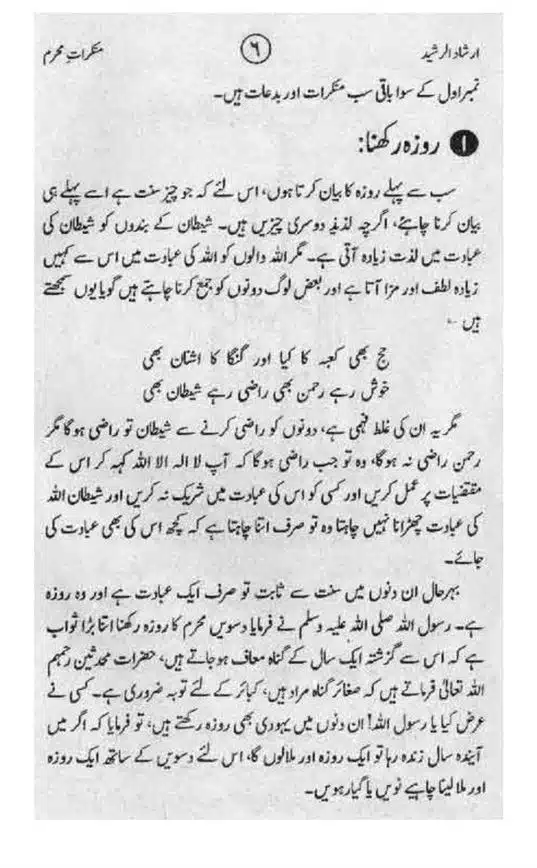 ارشاد الرشید ۶ منکراتِ محرم
نمبر اول کے سوا باقی سب منکرات اور بدعات ہیں۔
۱ روزہ رکھنا:
سب سے پہلے روزہ کا بیان کرتا ہوں، اس لئے کہ جو چیز سنت ہے اسے پہلے ہی
بیان کرنا چاہئے، اگرچہ لذیذ دوسری چیزیں ہیں۔ شیطان کے بندوں کو شیطان کی
عبادت میں لذت زیادہ آتی ہے۔ مگر اللہ والوں کو اللہ کی عبادت میں اس سے کہیں
زیادہ لطف اور مزا آتا ہے اور بعض لوگ دونوں کو جمع کرنا چاہتے ہیں گویا یوں سمجھتے
ہیں ؎
حج بھی کعبہ کا کیا اور گنگا کا اشنان بھی
خوش رہے رحمن بھی راضی رہے شیطان بھی
مگر یہ ان کی غلط فہمی ہے، دونوں کو راضی کرنے سے شیطان تو راضی ہوگا مگر
رحمن راضی نہ ہوگا، وہ تو جب راضی ہوگا کہ آپ لا الہ الا اللہ کہہ کر اس کے
مقتضیات پر عمل کریں اور کسی کو اس کی عبادت میں شریک نہ کریں اور شیطان اللہ
کی عبادت چھڑانا نہیں چاہتا وہ تو صرف اتنا چاہتا ہے کہ کچھ اس کی بھی عبادت کی
جائے۔
بہرحال ان دنوں میں سنت سے ثابت تو صرف ایک عبادت ہے اور وہ روزہ
ہے۔ رسول اللہ صلی اللہ علیہ وسلم نے فرمایا دسویں محرم کا روزہ رکھنا اتنا بڑا ثواب
ہے کہ اس سے گزشتہ ایک سال کے گناہ معاف ہوجاتے ہیں، حضرات محدثین رحمہم
اللہ تعالیٰ فرماتے ہیں کہ صغائر گناہ مراد ہیں، کبائر کے لئے توبہ ضروری ہے۔ کسی نے
عرض کیا یا رسول اللہ! ان دنوں میں یہودی بھی روزہ رکھتے ہیں، تو فرمایا کہ اگر میں
آیندہ سال زندہ رہا تو ایک روزہ اور ملالوں گا، اس لئے دسویں کے ساتھ ایک روزہ
اور ملا لینا چاہیے نویں یا گیارہویں۔